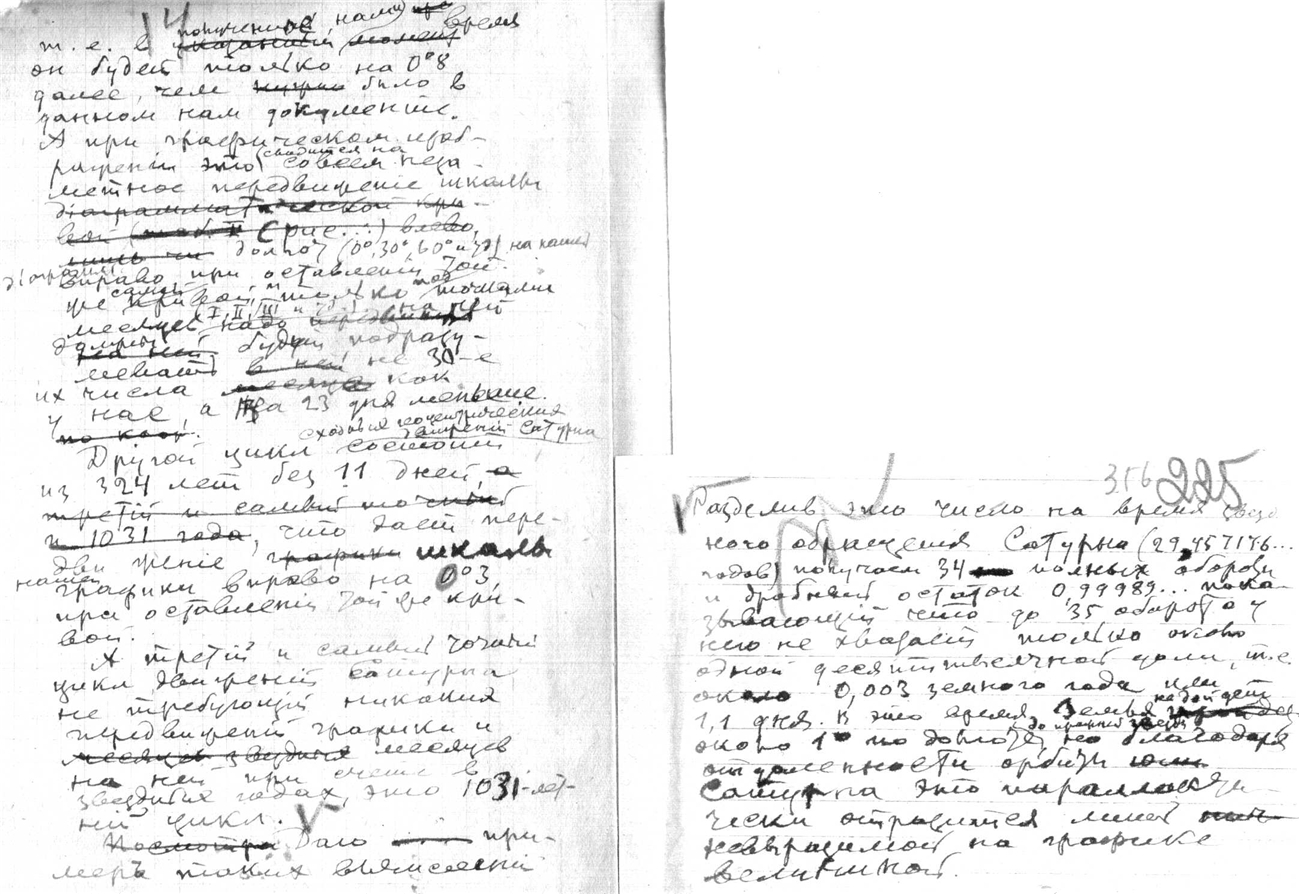 14
полученное нами
т. е. в указанный момент время
он будет только на 0°8
далее, чем нужно было в
данном нам документе.
А при графическом изоб-
ражении это сводится на
совсем неза-
метное передвижение шкалы
диаграмматической кри-
вой (рис...) влево,
долгот (0°, 30°, 60° и т д) на нашей
диаграмме
вправо при оставлении той
же самой кривой, только под точками
месяцев I, II, III и т. д. на ней
надо
будет подразу-
мевать в ней не 30-е
их числа месяца как
у нас, а на 23 дня меньше.
сходных геоцентрических
движений Сатурна
Другой цикл состоит
из 324 лет без 11 дней, а
третий и самый точный
и 1031 года, что дает пере-
движение графики шкалы
нашей
графики вправо на 0°3,
при оставлении той же кри-
вой.
А третий и самый точный
цикл движений Сатурна
не требующий никаких
передвижений графики и
месяцев звездных месяцев
на ней при счете в
звездных годах, это 1031-лет-
ний цикл.
Даю при-
мер таких вычислений
316 225
Разделив это число на время звезд
ного обращения Сатурна (29,457176...
годов) получаем 34 полных оборота
и дробный остаток 0,99989... пока-
зывающий что до 35 оборота у
него не хватает только около
одной десятитысячной доли, т.е.
около 0,003 земного года или
1,1 дня. В это время Земля не дойдет
до прежней звезды
около 1° по долготе, но благодаря
отдаленности орбиты
Сатурна это параллакти-
чески отразится лишь
невыразимой на графике
величиной.